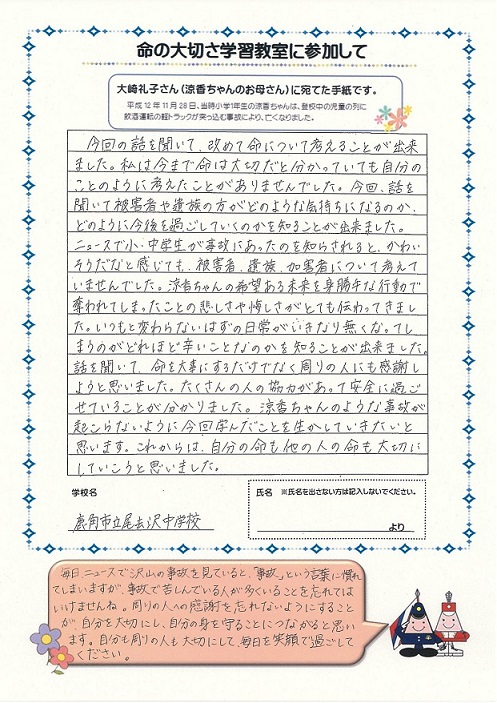 命の大切さ学習教室に参加して
大崎礼子さん(涼香ちゃんのお母さん)に宛てた手紙です。
平成12年11月28日、当時小学1年生の涼香ちゃんは、登校中の児童の列に
飲酒運転の軽トラックが突っ込む事故により、亡くなりました。
今回の話を聞いて、改めて命について考えることが出来
ました。私は今まで命は大切だと分かっていても自分の
ことのように考えたことがありませんでした。今回、話を
聞いて被害者や遺族の方がどのような気持ちになるのか、
どのように今後を過ごしていくのかを知ることが出来ました。
ニュースで小・中学生が事故にあったのを知らされると、かわい
そうだなと感じても、被害者、遺族、加害者について考えて
いませんでした。涼香ちゃんの希望ある未来を身勝手な行動で
奪われてしまったことの悲しさや悔しさがとても伝わってきまし
た。いつもと変わらないはずの日常がいきなり無くなってし
まうのがどれほど辛いことなのかを知ることが出来ました。
話を聞いて、命を大事にするだけでなく周りの人にも感謝し
ようと思いました。たくさんの人の協力があって安全に過ご
せていることが分かりました。涼香ちゃんのような事故が
起こらないように今回学んだことを生かしていきたいと
思います。これからは、自分の命も他の人の命も大切に
していこうと思いました。
学校名
鹿角市立尾去沢中学校
氏名 ※氏名を出さない方は記入しないでください。
より
毎日、ニュースで沢山の事故を見ていると、「事故」という言葉に慣れ
てしまいますが、事故で苦しんでいる人が多くいることを忘れては
いけませんね。周りの人への感謝を忘れないようにすること
が、自分を大切にし、自分の身を守ることにつながると思い
ます。自分も周りの人も大切にして、毎日を笑顔で過ごして
ください。